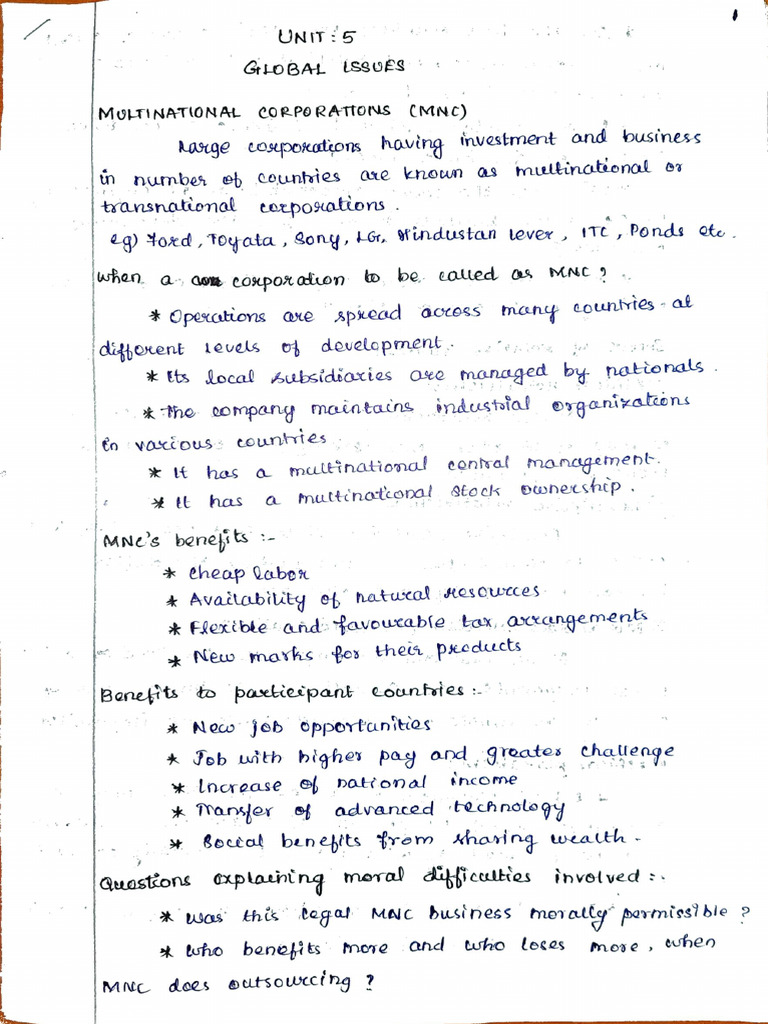 1
UNIT: 5
GLOBAL ISSUES
MULTINATIONAL CORPORATIONS (MNC)
Large corporations having investment and business
in number of countries are known as multinational or
transnational corporations.
eg) Ford, Toyata, Sony, LG, Hindustan Lever, ITC, Ponds etc.
When a corporation to be called as MNC?
* Operations are spread across many countries at
different levels of development.
* Its local subsidiaries are managed by nationals.
* The company maintains industrial organizations
in various countries
* It has a multinational central management.
* It has a multinational stock ownership.
MNC's benefits :-
* Cheap labor
* Availability of natural resources
* Flexible and favourable tax arrangements
* New marks for their products
Benefits to participant countries :-
* New job opportunities
* Job with higher pay and greater challenge
* Increase of national income
* Transfer of advanced technology
* Social benefits from sharing wealth.
Questions explaining moral difficulties involved :-
* Was this legal MNC business morally permissible?
* Who benefits more and who loses more, when
MNC does outsourcing?